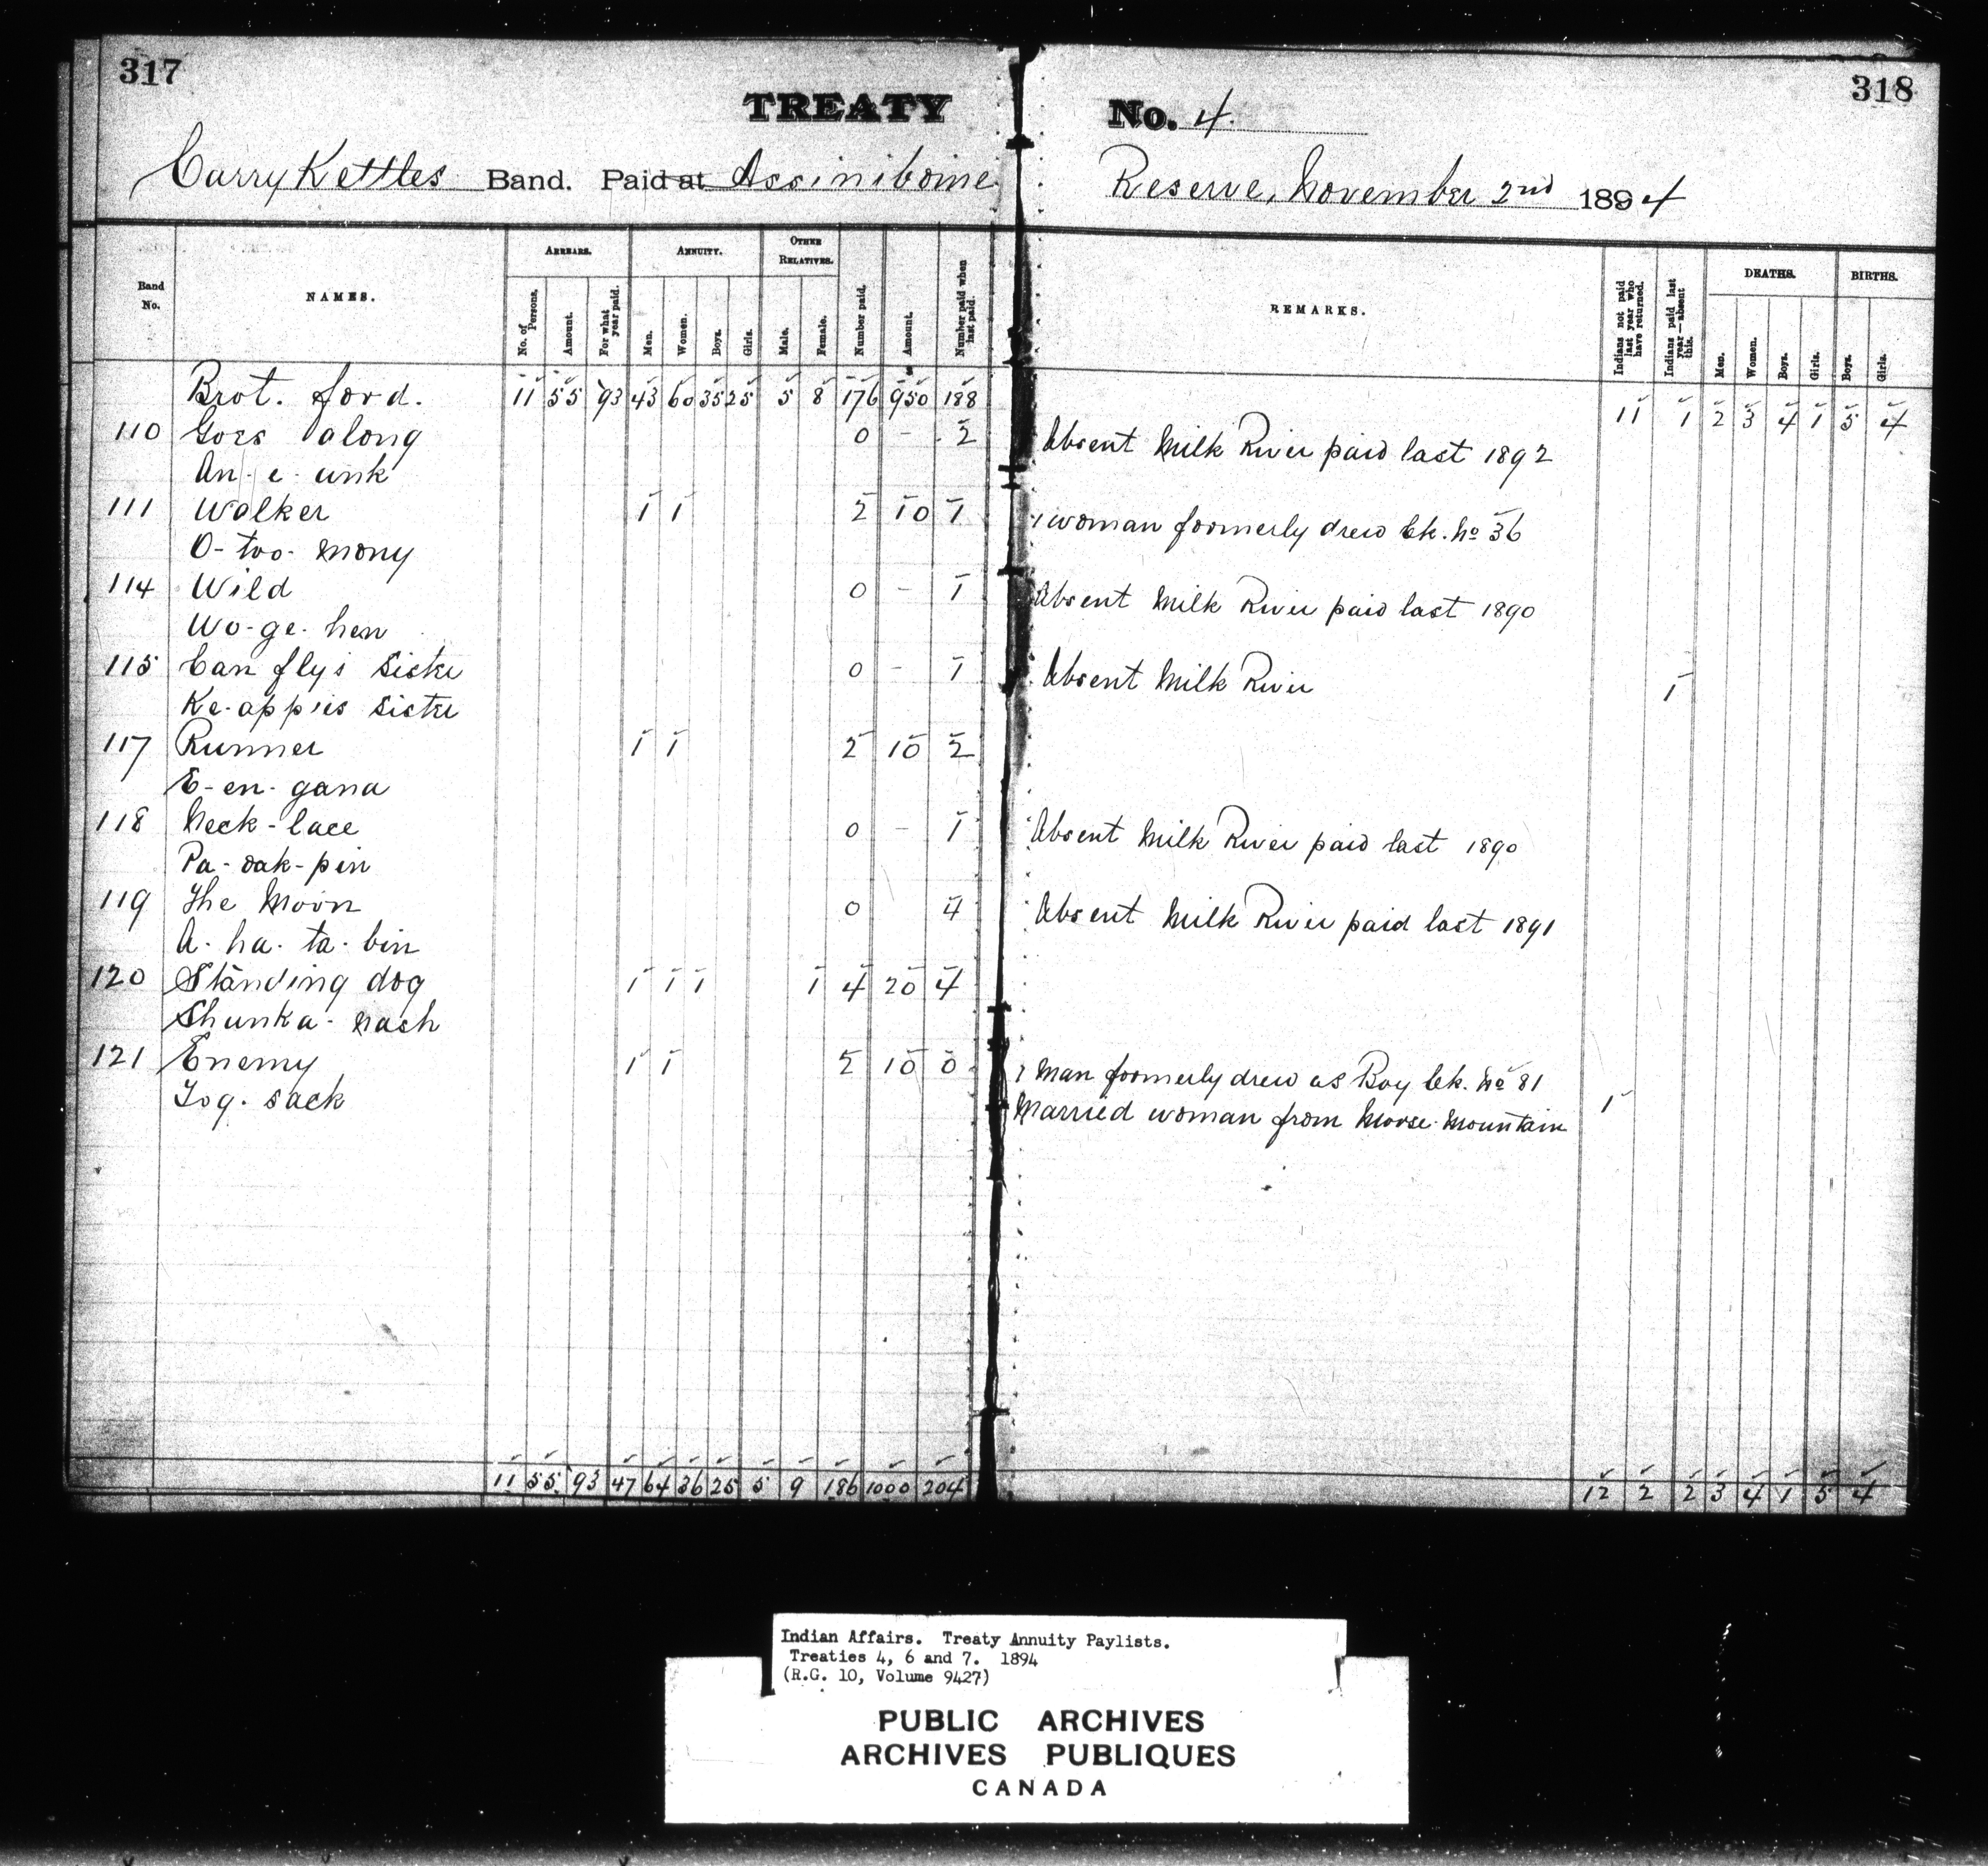 317
318
TREATY No. 4.
Carry Kettles Band. Paid at Assiniboine Reserve, November 2nd 1894
Band No.
NAMES.
ARREARS.
No. of Persons.
Amount.
For what year paid.
ANNUITY.
Men.
Women.
Boys.
Girls.
OTHER RELATIVES.
Male.
Female.
Number paid.
Amount.
Number paid when last paid.
REMARKS.
Indians not paid last year who have returned.
Indians paid last year—absent this.
DEATHS.
Men.
Women.
Boys.
Girls.
BIRTHS.
Boys.
Girls.
Brot. ford. 11 55 93 43 60 35 25 5 8 176 950 188 11 1 2 3 4 1 5 4
110 Goes along 0 - 2 Absent Milk River paid last 1892
An-e-unk
111 Walker 1 1 2 10 1 1 woman formerly drew tk. No 36
O-too-mony
114 Wild 0 - 1 Absent Milk River paid last 1890
Wo-ge-hen
115 Can flys Sister 0 - 1 Absent Milk River 1
Ke-appies Sister
117 Runner 1 1 2 10 2
E-en-gana
118 Neck-lace 0 - 1 Absent Milk River paid last 1890
Pa-oak-pin
119 The Moon 0 4 Absent Milk River paid last 1891
A-ha-ta-bin
120 Standing dog 1 1 1 1 4 20 4
Shunka-nash
121 Enemy 1 1 2 10 0 1 Man formerly drew as Boy tk. No 81
Tog-sack Married woman from Moose Mountain 1
11 55 93 47 64 36 25 5 9 186 1000 204 12 2 2 3 4 1 5 4
Indian Affairs. Treaty Annuity Paylists.
Treaties 4, 6 and 7. 1894
(R.G. 10, Volume 9427)
PUBLIC ARCHIVES
ARCHIVES PUBLIQUES
CANADA